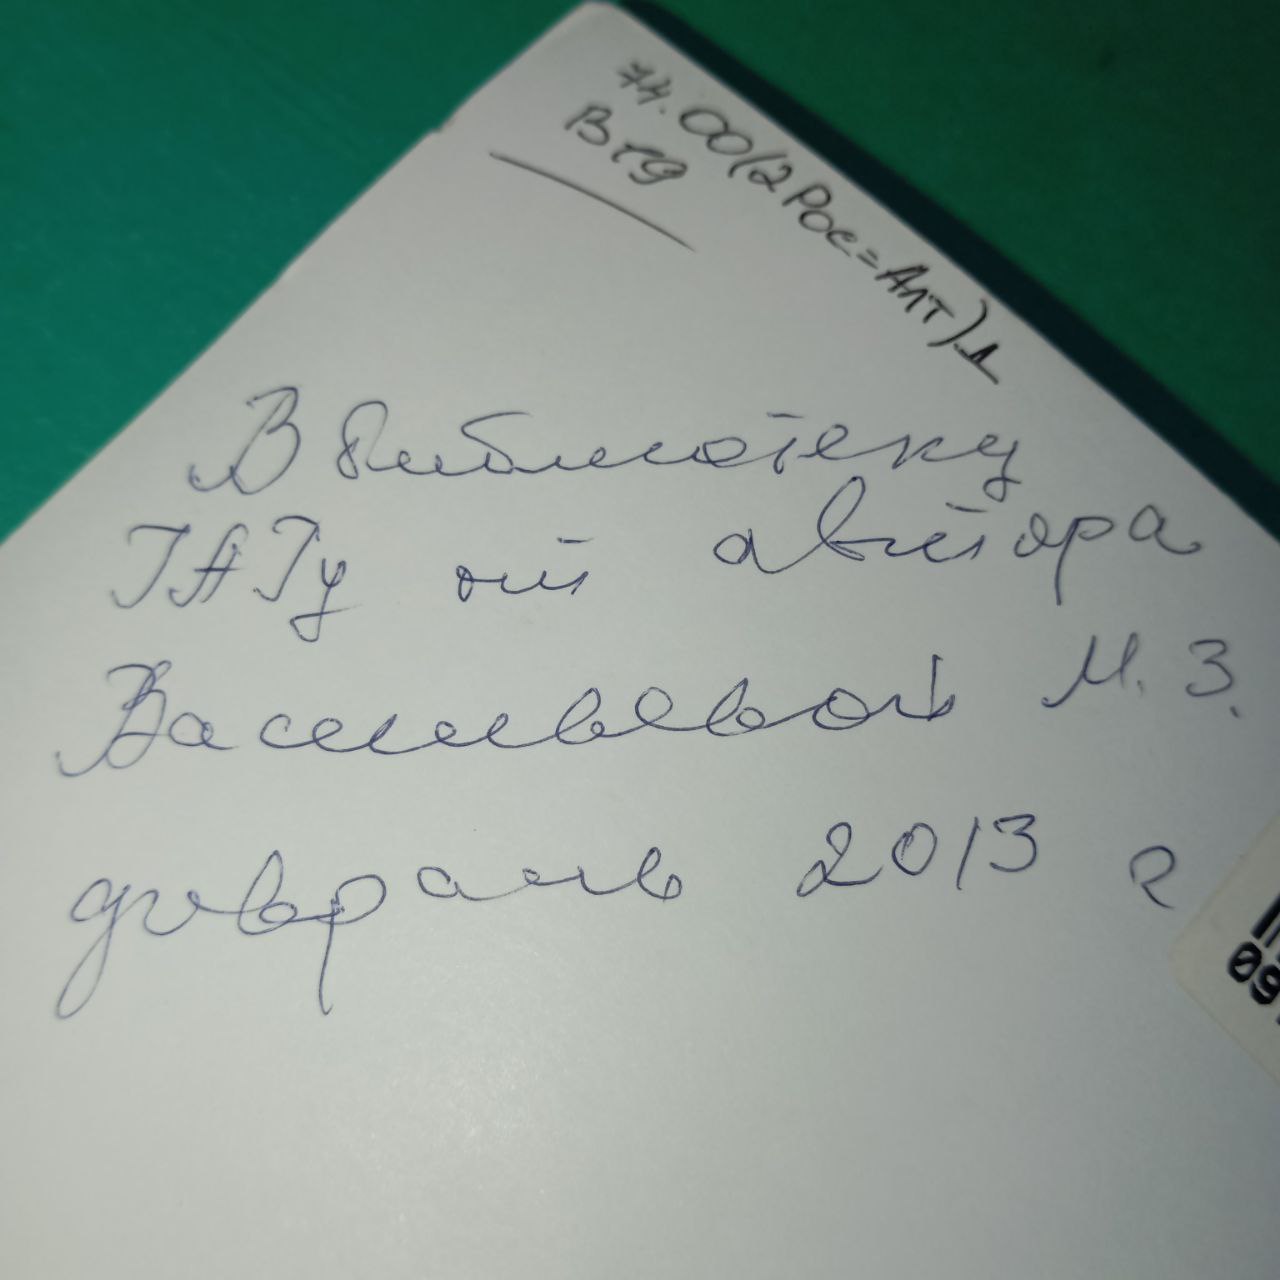 74.00(2Рос=Алт).1
В 19
В библиотеку
ГАГУ от автора
Васильевой М. З.
февраль 2013 г
09